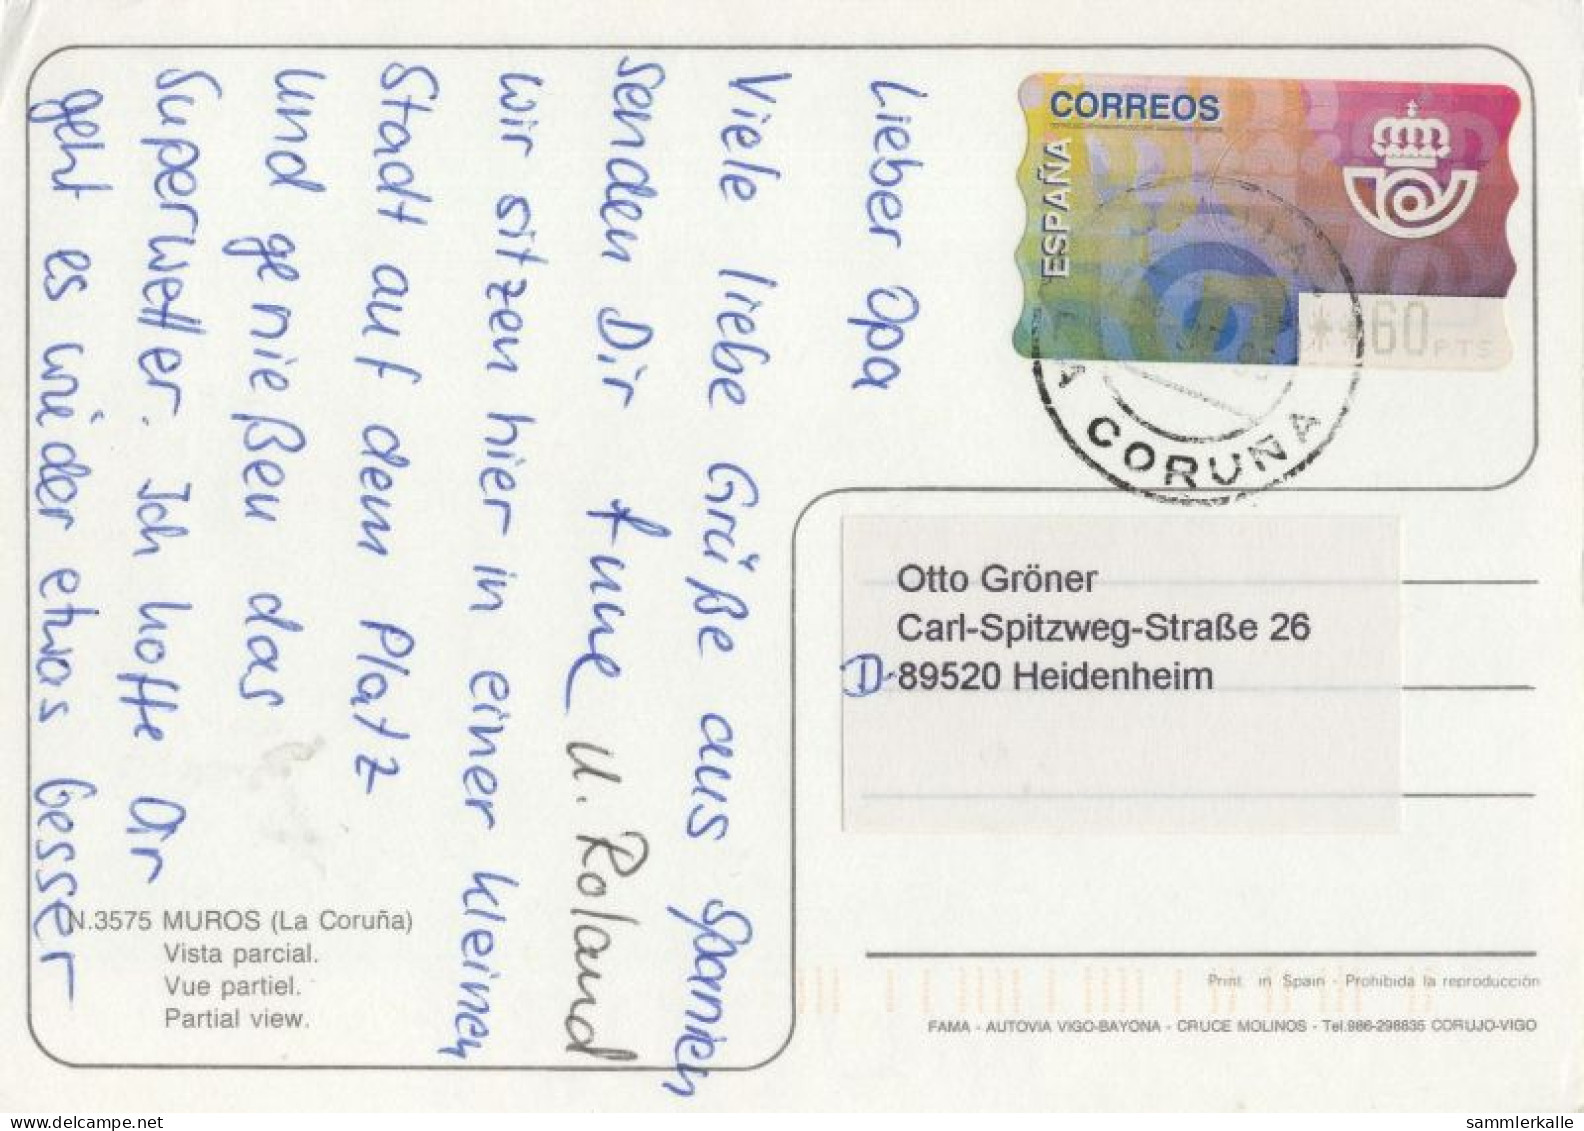 Lieber Opa
Viele liebe Grüße aus Spanien
senden Dir Anne u. Roland
wir sitzen hier in einer kleinen
Stadt auf dem Platz
und genießen das
Superwetter. Ich hoffe Dir
geht es wieder etwas besser
N.3575 MUROS (La Coruña)
Vista parcial.
Vue partiel.
Partial view.
CORREOS
ESPAÑA
**60 PTS
A CORUÑA
Otto Gröner
Carl-Spitzweg-Straße 26
D-89520 Heidenheim
Print. in Spain - Prohibida la reproducción
FAMA - AUTOVIA VIGO-BAYONA - CRUCE MOLINOS - Tel.986-298835 CORUJO-VIGO
sammlerkalle